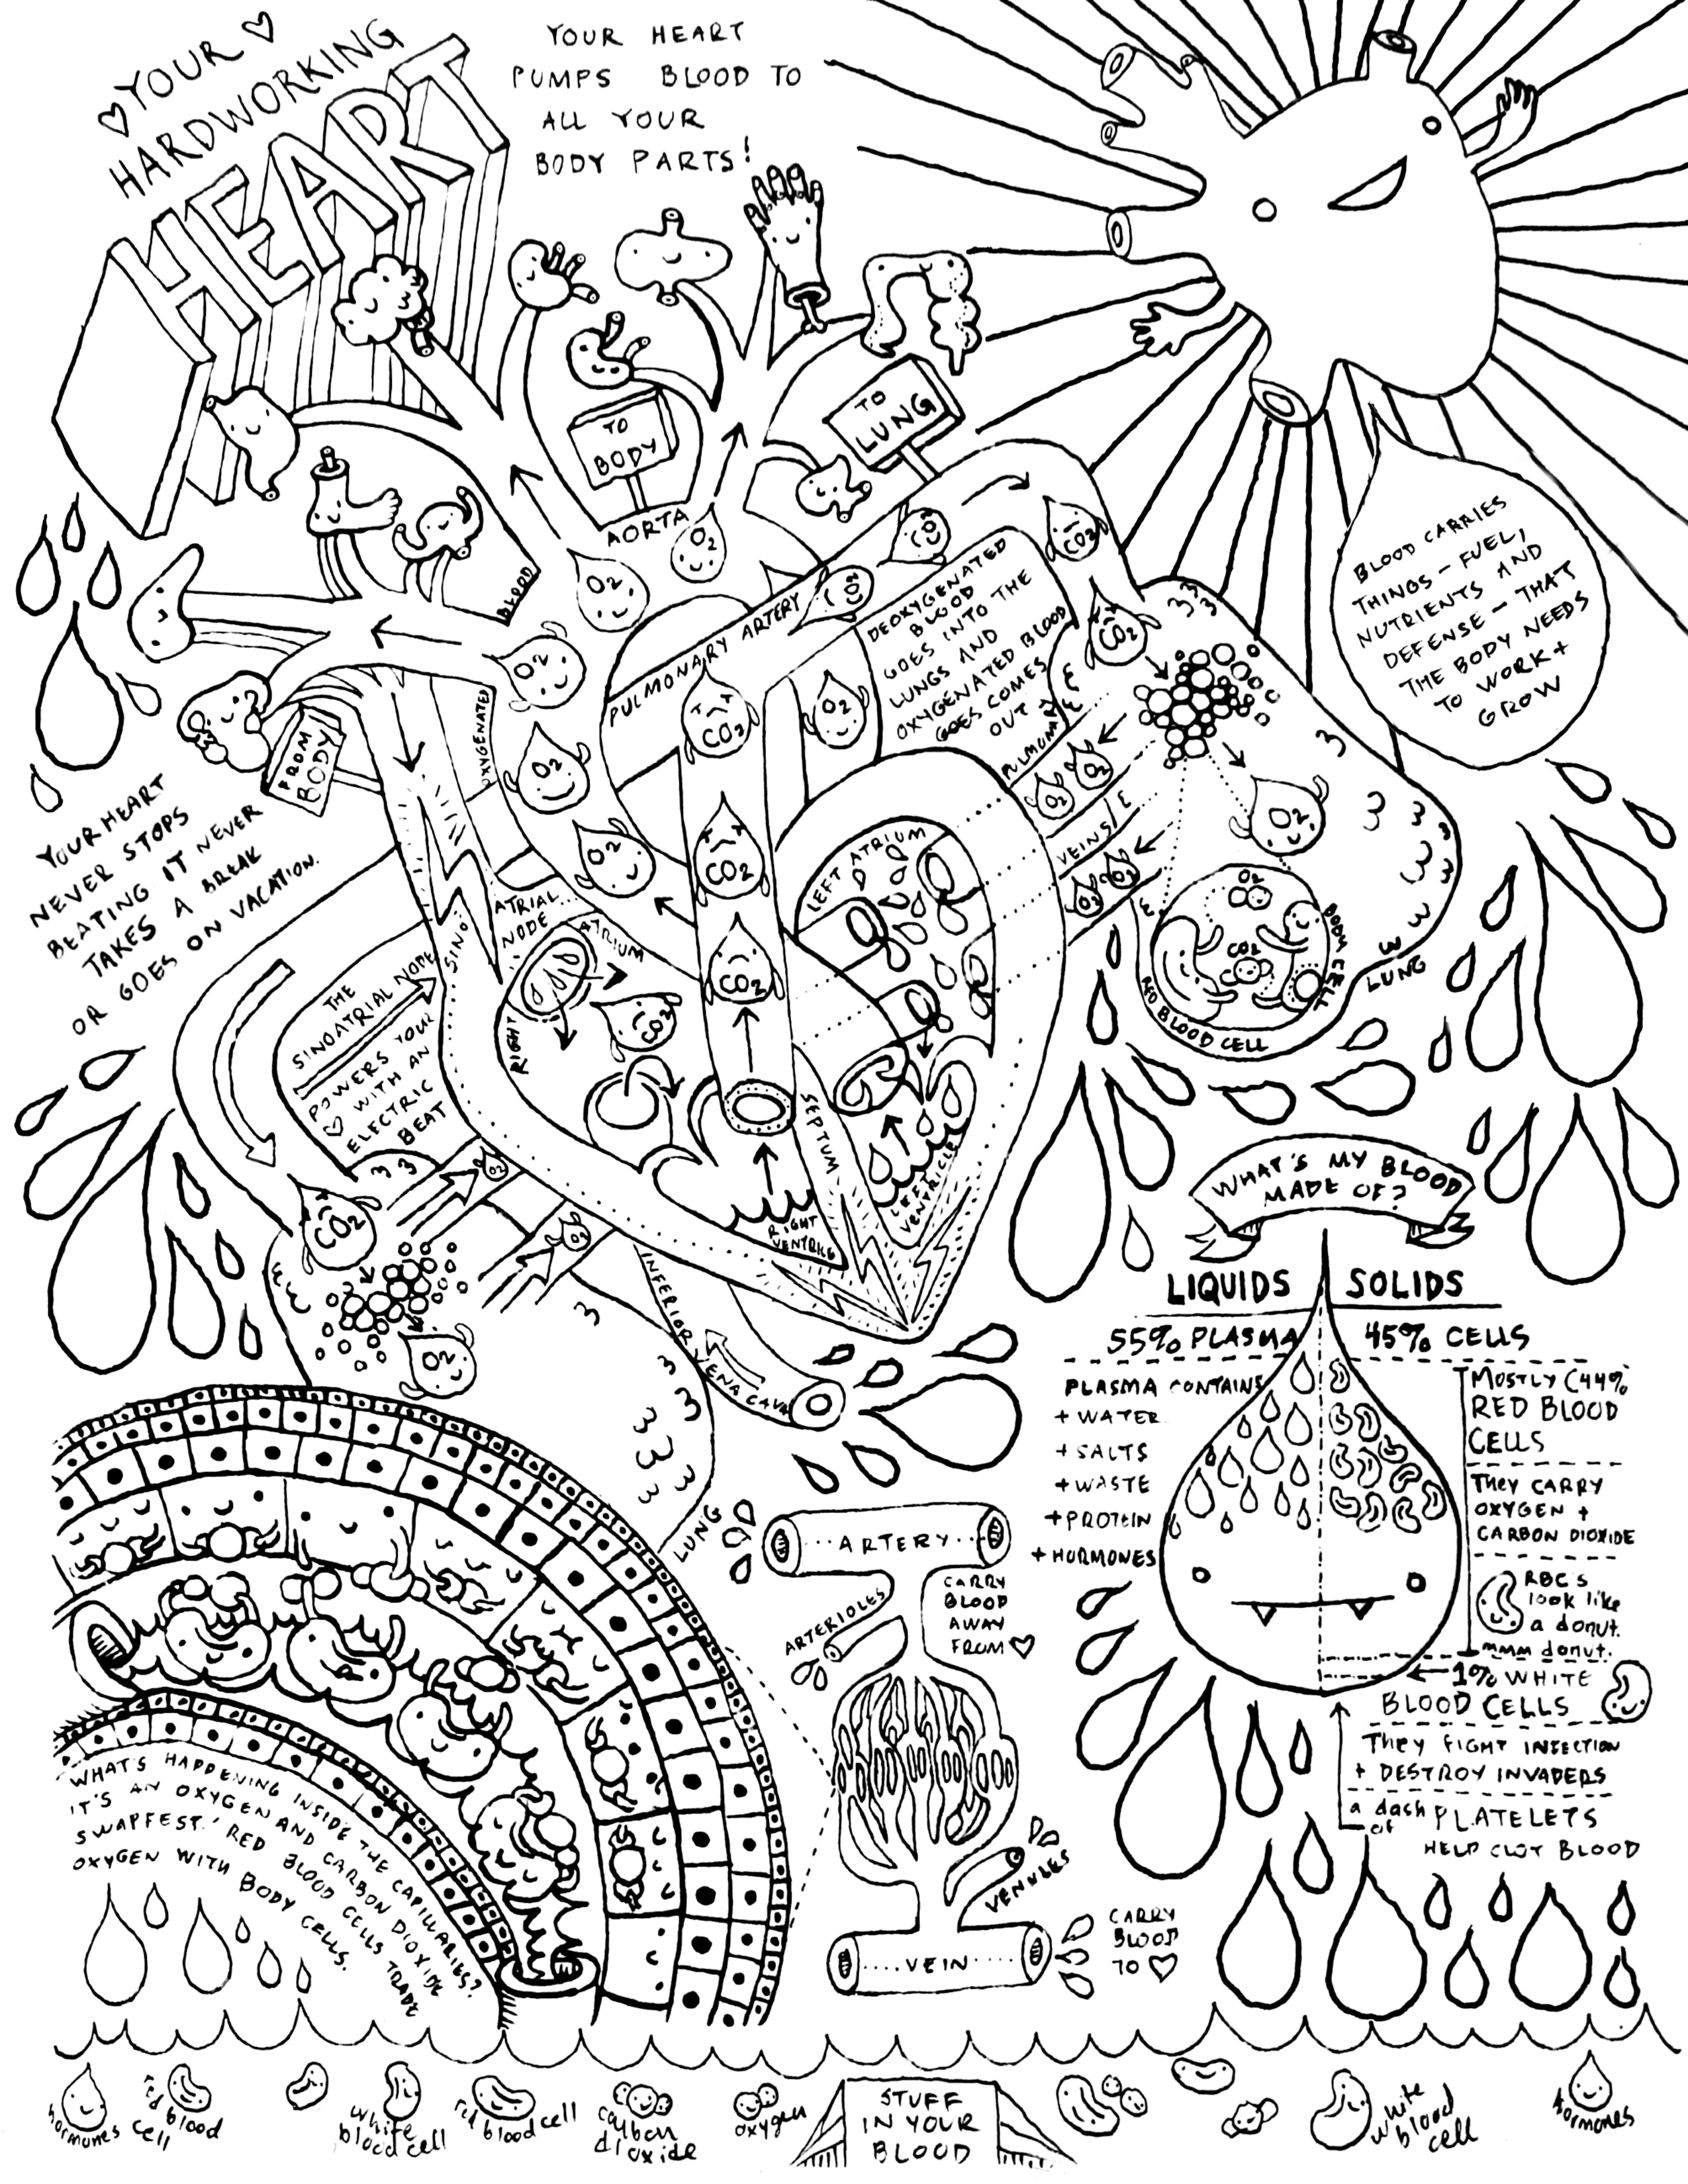 YOUR
HARDWORKING
HEART
YOUR HEART
PUMPS BLOOD TO
ALL YOUR
BODY PARTS!
TO
BODY
TO
LUNG
AORTA
O2
O2
CO2
CO2
BLOOD
CARRIES
THINGS - FUEL,
NUTRIENTS AND
DEFENSE - THAT
THE BODY NEEDS
TO WORK +
GROW
BLOOD
OXYGENATED
O2
O2
O2
PULMONARY ARTERY
CO2
DEOXYGENATED
BLOOD
GOES INTO THE
LUNGS AND
OXYGENATED BLOOD
GOES COMES
OUT
CO2
O2
CO2
CO2
CO2
PULMONARY
VEINS
O2
O2
O2
O2
O2
FROM
BODY
YOUR HEART
NEVER STOPS
BEATING IT NEVER
TAKES A BREAK
OR GOES ON VACATION.
SINO
ATRIAL
NODE
RIGHT
ATRIUM
CO2
LEFT ATRIUM
O2
CO2
BODY CELL
RED BLOOD CELL
LUNG
THE
SINOATRIAL NODE
POWERS YOUR
♡ WITH AN
ELECTRIC
BEAT
SEPTUM
LEFT
VENTRICLE
RIGHT
VENTRICLE
CO2
O2
O2
O2
INFERIOR VENA CAVA
LUNG
WHAT'S MY BLOOD
MADE OF?
LIQUIDS
SOLIDS
55% PLASMA
45% CELLS
PLASMA CONTAINS
+ WATER
+ SALTS
+ WASTE
+ PROTEIN
+ HORMONES
MOSTLY (44%
RED BLOOD
CELLS
They CARRY
OXYGEN +
CARBON DIOXIDE
RBC'S
look like
a donut.
mmm donut.
1% WHITE
BLOOD CELLS
They FIGHT INFECTION
+ DESTROY INVADERS
a dash
of
PLATELETS
HELP CLOT BLOOD
ARTERY
ARTERIOLES
CARRY
BLOOD
AWAY
FROM ♡
VENULES
VEIN
CARRY
BLOOD
TO ♡
WHAT'S HAPPENING INSIDE THE CAPILLARIES?
IT'S AN OXYGEN AND CARBON DIOXIDE
SWAPFEST! RED BLOOD CELLS TRADE
OXYGEN WITH BODY CELLS.
hormones
red blood
cell
white
blood cell
red blood cell
carbon
dioxide
oxygen
STUFF
IN YOUR
BLOOD
white
blood
cell
hormones